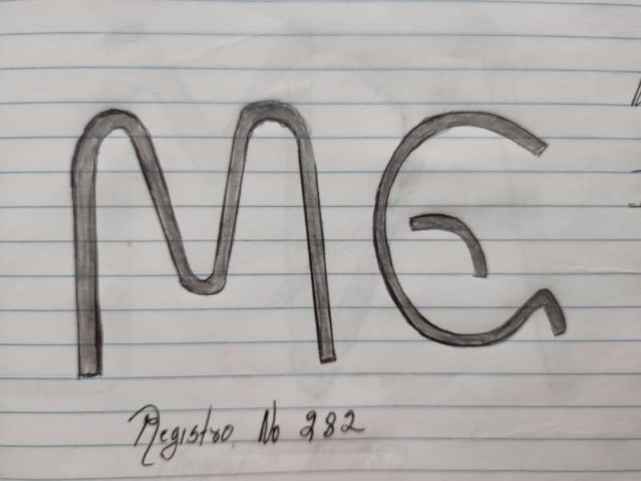 MG
Registro No 282